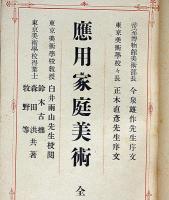 帝室博物館美術部長 今泉雄作先生序文
東京美術學校々長 正木直彦先生序文
應用家庭美術 全
東京美術學校教授 白井雨山先生校閲
鈴木古拙
東京美術學校得業士 森田洪共著
牧野等